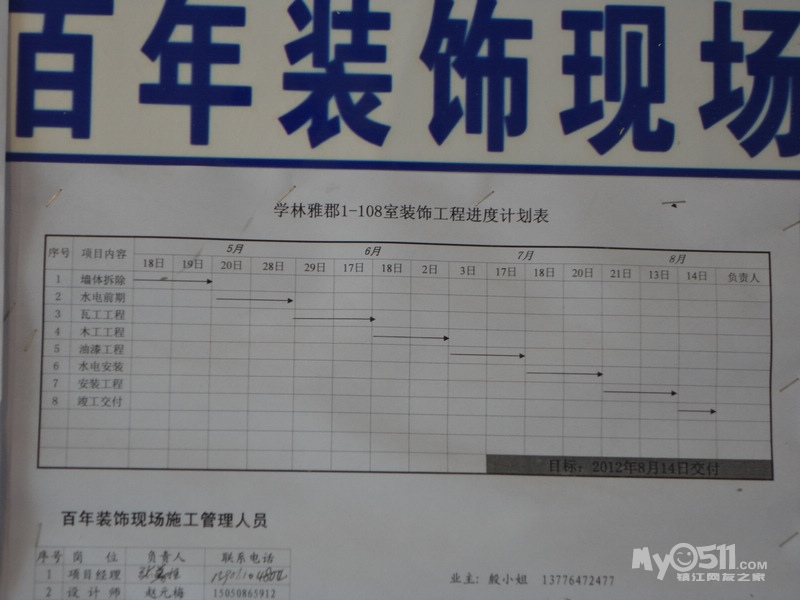 百年装饰现场
学林雅郡1-108室装饰工程进度计划表
序号 项目内容 5月 6月 7月 8月 负责人
18日 19日 20日 28日 29日 17日 18日 2日 3日 17日 18日 20日 21日 13日 14日
1 墙体拆除
2 水电前期
3 瓦工工程
4 木工工程
5 油漆工程
6 水电安装
7 安装工程
8 竣工交付
目标：2012年8月14日交付
百年装饰现场施工管理人员
序号 岗 位 负责人 联系电话
1 项目经理
2 设计师 赵元梅 15050865912
业主：殷小姐 13776472477
My0511.com
镇江网友之家